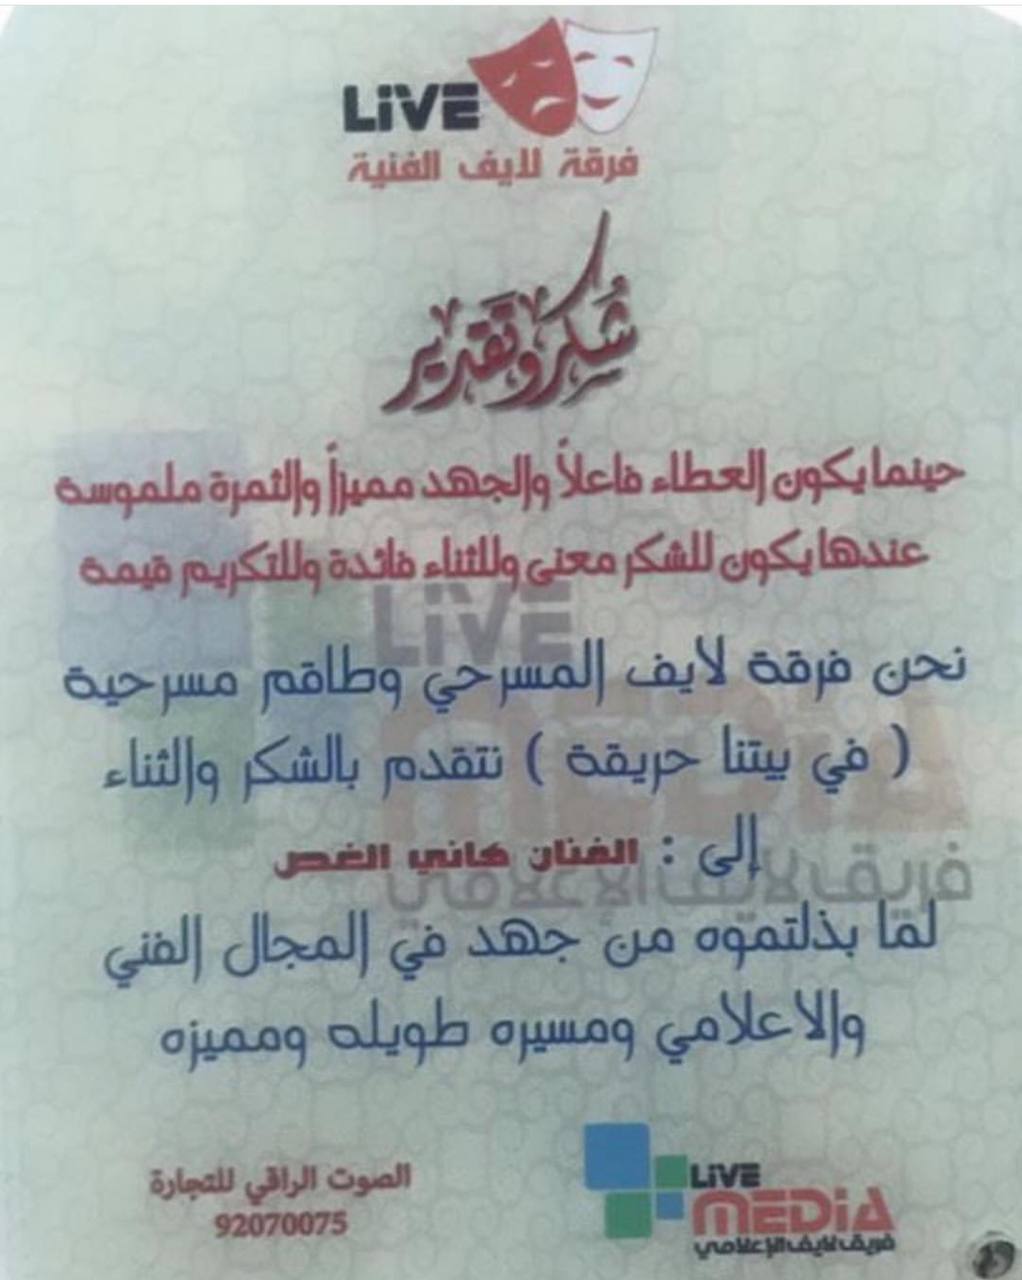 LiVE
فرقة لايف الفنية
شُكر وتَقدير
حينما يكون العطاء فاعلاً والجهد مميزاً والثمرة ملموسة
عندها يكون للشكر معنى وللثناء فائدة وللتكريم قيمة
LiVE
MEDiA
فريق لايف الإعلامي
نحن فرقة لايف المسرحي وطاقم مسرحية
( في بيتنا حريقة ) نتقدم بالشكر والثناء
إلى : الفنان هاني الغص
لما بذلتموه من جهد في المجال الفني
والاعلامي ومسيره طويله ومميزه
LiVE
MEDiA
فريق لايف الإعلامي
الصوت الراقي للتجارة
92070075